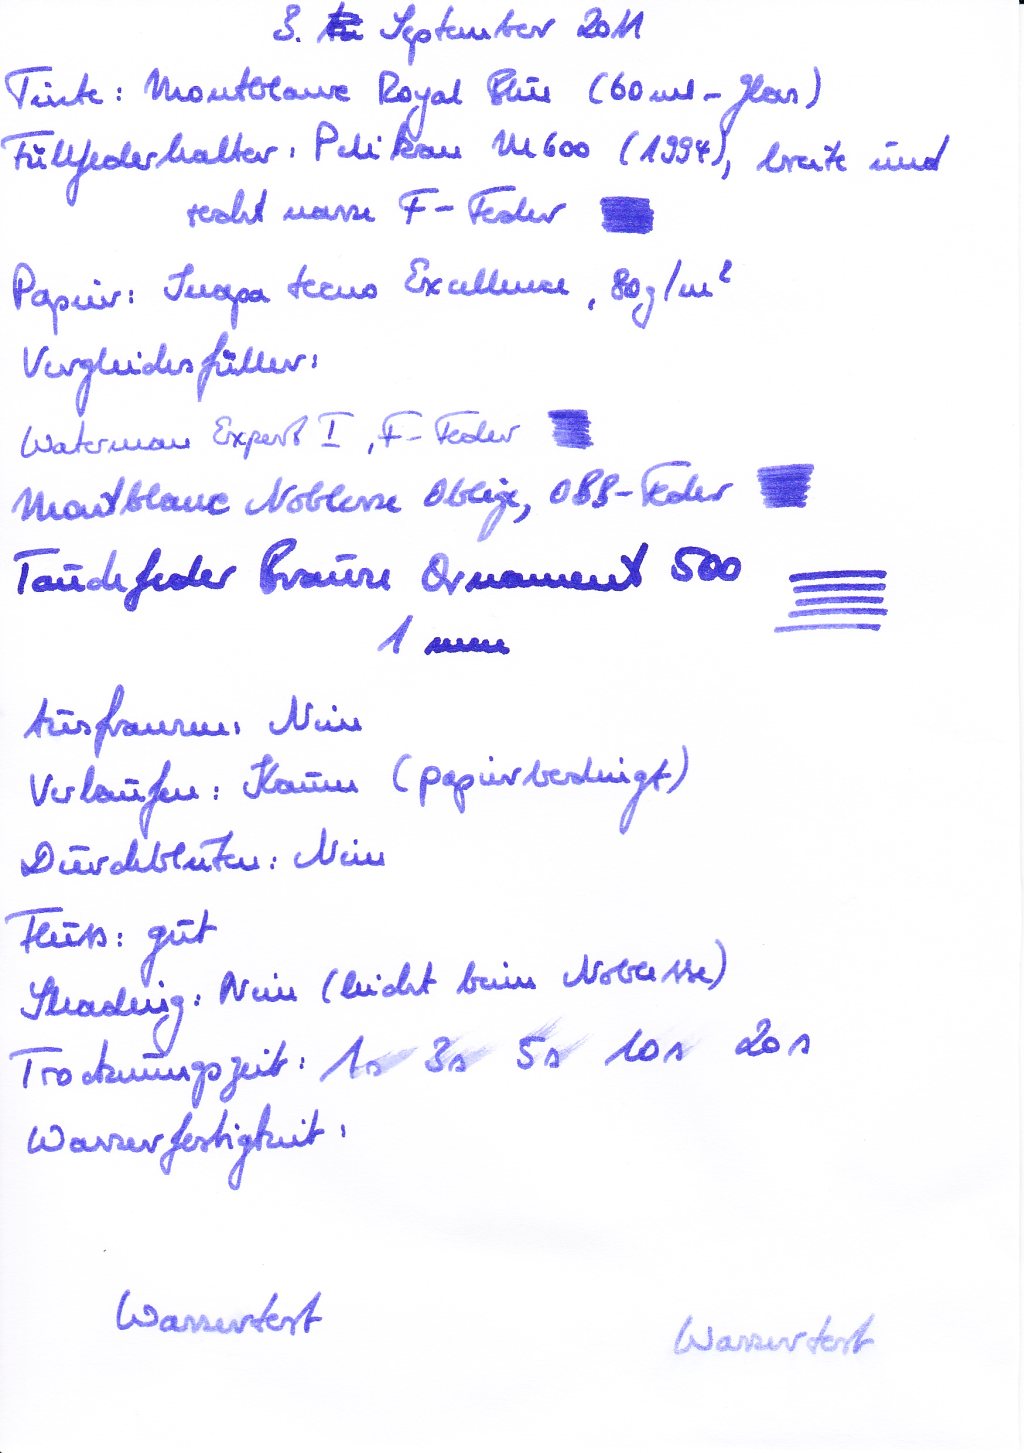 3. September 2011
Tinte: Montblanc Royal Blue (60 ml-Glas)
Füllfederhalter: Pelikan M600 (1994), breite und
recht nasse F-Feder
Papier: Inapa tecno Excellence, 80g/m²
Vergleichsfüller:
Waterman Expert I, F-Feder
Montblanc Noblesse Oblige, OBB-Feder
Tauchfeder Brause Ornament 500
1 mm
Ausfransen: Nein
Verlaufen: Kaum (papierbedingt)
Durchbluten: Nein
Fluss: gut
Shading: Nein (leicht beim Noblesse)
Trocknungszeit: 1s 3s 5s 10s 20s
Wasserfestigkeit:
Wassertest
Wassertest